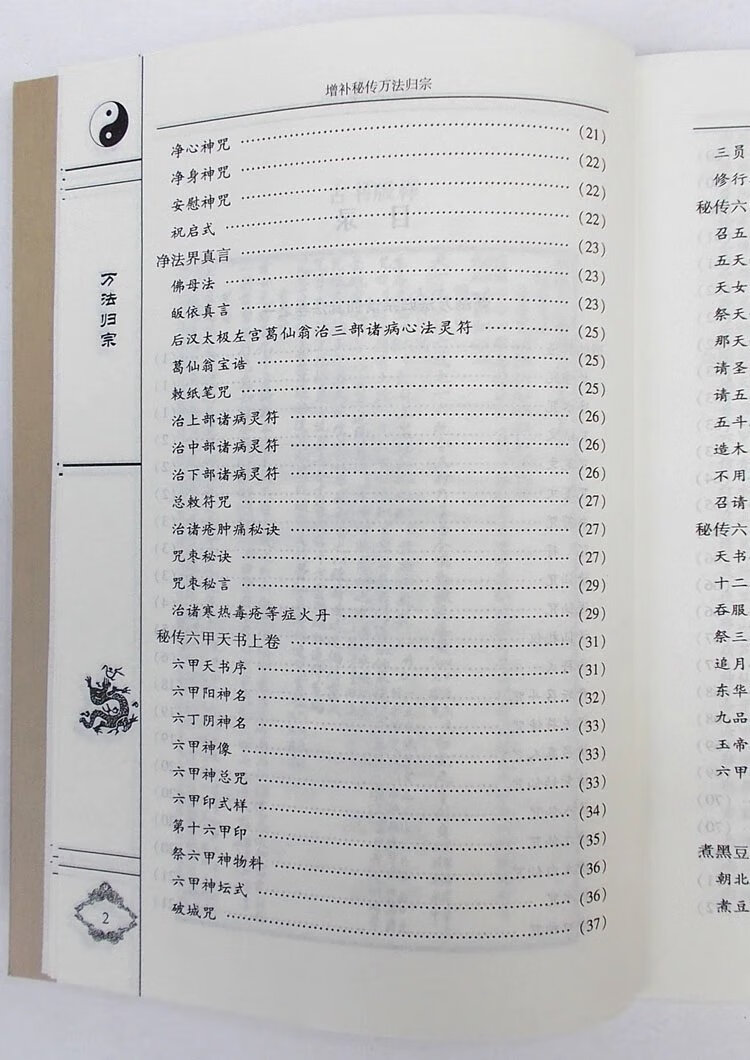 增补秘传万法归宗
万法归宗
净心神咒 (21)
净身神咒 (22)
安慰神咒 (22)
祝启式 (22)
净法界真言 (23)
佛母法 (23)
皈依真言 (23)
后汉太极左宫葛仙翁治三部诸病心法灵符 (25)
葛仙翁宝诰 (25)
敕纸笔咒 (25)
治上部诸病灵符 (26)
治中部诸病灵符 (26)
治下部诸病灵符 (26)
总敕符咒 (27)
治诸疮肿痛秘诀 (27)
咒枣秘诀 (27)
咒枣秘言 (29)
治诸寒热毒疮等症火丹 (29)
秘传六甲天书上卷 (31)
六甲天书序 (31)
六甲阳神名 (32)
六丁阴神名 (33)
六甲神像 (33)
六甲神总咒 (33)
六甲印式样 (34)
第十六甲印 (35)
祭六甲神物料 (36)
六甲神坛式 (36)
破城咒 (37)
2
三员
修行
秘传六
召五
五天
天女
祭天
那天
请圣
请五
五斗
造木
不用
召请
秘传六
天书
十二
吞服
祭三
追月
东华
九品
玉帝
六甲
煮黑豆
朝北
煮豆